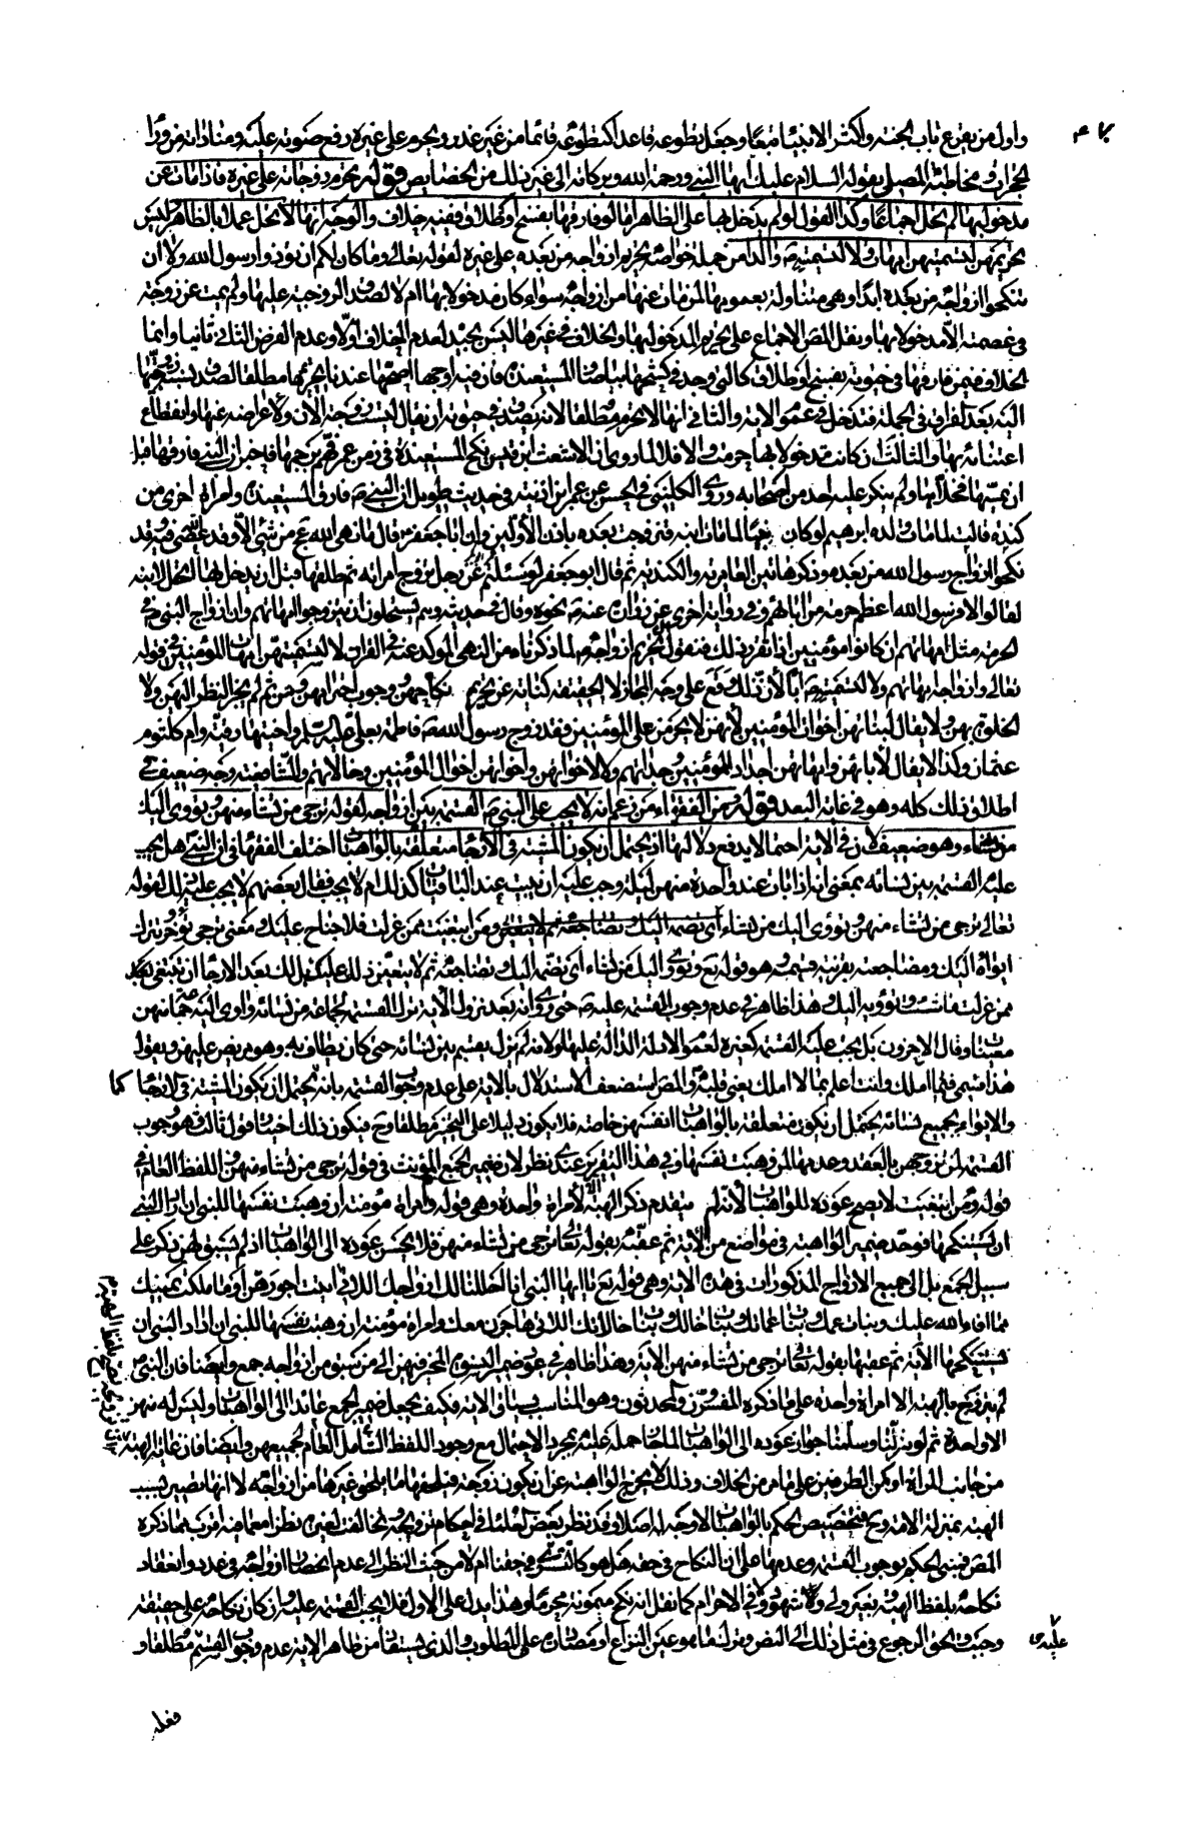 واول من يقرع باب الجنة واكثر الانبياء تبعا وجعل تطوعه قاعدا كتطوعه قائما من غير عذر ويحرم على غيره رفع صوته عليه ومناداته من وراء
الحجرات ومخاطبة المصلى بقوله السلام عليك ايها النبي ورحمة الله وبركاته الى غير ذلك من الخصايص قوله وتحرم زوجاته على غيره فاذا مات عن
مدخول بها لم تحل اجماعا وكذا القول لو لم يدخل بها على الظاهر اما لو فارقها بفسخ او طلاق ففيه خلاف والوجه انها لا تحل عملا بالظاهر وليس
تحريمهن لتسميتهن امهات ولا لتسميته والدا من جملة خواصه تحريم ازواجه من بعده على غيره لقوله تعالى وما كان لكم ان تؤذوا رسول الله ولا ان
تنكحوا ازواجه من بعده ابدا وهى متناولة بعمومها لمن مات عنها من ازواجه سواء كان مدخولا بها ام لا لصدق الزوجية عليها ولم يمت عن زوجة
فى عصمته الا مدخولا بها ونقل المص الاجماع على تحريم المدخول بها والخلاف فى غيرها ليس بجيد لعدم الخلاف اولا وعدم الفرض الثانى ثانيا وانما
الخلاف فيمن فارقها فى حيوته بفسخ او طلاق كالتى وجد بكشحها بياضا والمستعيذة فان فيه اوجها اصحها عندنا تحريمها مطلقا لصدق نسبة زوجيتها
اليه بعد الفراق فى الجملة فتدخل فى عموم الاية والثانى انها لا تحرم مطلقا لانه يصدق فى حيوته ان يقال ليست زوجته الان ولاعراضه عنها وانقطاع
اعتنائه بها والثالث ان كانت مدخولا بها حرمت والا فلا لما روى ان الاشعث ابن قيس نكح المستعيذة فى زمن عمر فهم برجمها فاخبر ان النبى فارقها قبل
ان يمسها فخلاهما ولم ينكر عليه احد من الصحابة وروى الكلينى فى الحسن عن عمر ابن اذينة فى حديث طويل ان النبي فارق المستعيذة وامراة اخرى من
كندة قالت لما مات ولده ابرهيم لو كان نبيا لما مات ابنه فتزوجتا بعده باذن الاولين وان ابا جعفر قال ما نهى الله عن شئ الا وقد عصى فيه وقد
نكحوا ازواج رسول الله من بعده وذكر هاتين العامرية والكندية ثم قال ابو جعفر لو سئلتم عن رجل تزوج امراة ثم طلقها قبل ان يدخل بها اتحل لابنه
لقالوا لا فرسول الله اعظم حرمة من ابائهم وفى رواية اخرى عن زرارة عنه نحوه وقال فى حديثه وهم يستحلون ان يتزوجوا امهاتهم وان ازواج النبى فى
الحرمة مثل امهاتهم ان كانوا مؤمنين اذا تقرر ذلك فنقول تحريم ازواجه لما ذكرناه من النهى المؤكد عنه فى القران لا لتسميتهن امهات المؤمنين فى قوله
تعالى وازواجه امهاتهم ولا لتسميته ابا لان ذلك وقع على وجه المجاز لا الحقيقة كناية عن تحريم نكاحهن ووجوب احترامهن ومن ثم لم يجز النظر اليهن ولا
الخلوة بهن ولا يقال لبناتهن اخوات المؤمنين لانهن لا يحرمن على المؤمنين فقد زوج رسول الله فاطمة بعلى واختيها رقية وام كلثوم
عثمان وكذا لا يقال لابائهن وامهاتهن اجداد المؤمنين وجداتهم ولا لاخوانهن واخواتهن اخوال المؤمنين وخالاتهم وللشافعية وجه ضعيف فى
اطلاق ذلك كله وهو فى غاية البعد قوله ومن الفقهاء من زعم انه لا يجب على النبي القسمة بين ازواجه لقوله ترجى من تشاء منهن وتؤوى اليك
من تشاء وهو ضعيف لان فى الاية احتمالا يدفع دلالتها اذ يحتمل ان يكون المشية فى الارجاء متعلقة بالواهبات اختلف الفقهاء فى ان النبي هل يجب
عليه القسمة بين نسائه بمعنى انه اذا بات عند واحدة منهن ليلة وجب عليه ان يبيت عند الباقيات كذلك ام لا يجب فقال بعضهم لا يجب عليه ذلك لقوله
تعالى ترجى من تشاء منهن وتؤوى اليك من تشاء ومن ابتغيت ممن عزلت فلا جناح عليك ومعنى ترجى تؤخر وتترك
ايواءه اليك ومضاجعته بقرينة قسيمه وهو قوله تع وتؤوى اليك من تشاء اى تضمه اليك وتضاجعه ثم لا يتعين ذلك عليك بل لك بعد الارجاء ان تبتغى
ممن عزلت ما شئت وتؤويه اليك وهذا ظاهر فى عدم وجوب القسمة عليه حتى روى انه بعد نزول الاية ترك القسمة لجماعة من نسائه واوى اليه جماعة منهن
معينات وقال الاخرون بل تجب عليه القسمة كغيره لعموم الادلة الدالة عليها ولانه لم يزل يقسم بين نسائه حتى كان يطاف به وهو مريض عليهن ويقول
هذا قسمى فيما املك وانت اعلم بما لا املك يعنى قلبه والمص استضعف الاستدلال بالاية على عدم وجوب القسمة بانه يحتمل ان يكون المشية فى الارجاء
والايواء بجميع نسائه يحتمل ان يكون متعلقة بالواهبات انفسهن خاصة فلا يكون دليلا على التخيير مطلقا وح فيكون ذلك اختيار قول ثالث وهو وجوب
القسمة لمن تزوجهن بالعقد وعدمها لمن وهبت نفسها وفى هذا التقرير عندى نظر لان ضمير الجمع المؤنث فى قوله ترجى من تشاء منهن واللفظ العام فى
قوله ومن ابتغيت لا يصح عوده للواهبات لانه لم يتقدم ذكر الهبة الا لامراة واحدة وهى قوله وامراة مؤمنة ان وهبت نفسها للنبى ان اراد النبي
ان يستنكحها فوحد ضمير الواهبة فى مواضع من الاية ثم عقبه بقوله تعالى ترجى من تشاء منهن فلا يحسن عوده الى الواهبات اذ لم يسبق لهن ذكر على
سبيل الجمع بل الى جميع الازواج المذكورات فى هذه الاية وهى قوله تع يا ايها النبى انا احللنا لك ازواجك اللاتى اتيت اجورهن وما ملكت يمينك
مما افاء الله عليك وبنات عمك وبنات عماتك وبنات خالك وبنات خالاتك اللاتى هاجرن معك وامراة مؤمنة ان وهبت نفسها للنبى ان اراد النبى ان
يستنكحها الاية ثم عقبها بقوله تعالى ترجى من تشاء منهن الاية وهذا ظاهر فى عود ضمير النسوة المخير فيهن الى من سبق من ازواجه جمع وايضا فان النبى
لم يتزوج بالهبة الا امراة واحدة على ما ذكره المفسرون والمحدثون وهو المناسب لسياق الاية فكيف يجعل ضمير الجمع عائدا الى الواهبات وليس له منهن
الا واحدة ثم لو تنزلنا وسلمنا جواز عوده الى الواهبات لما جاز حمله عليه بمجرد الاحتمال مع وجود اللفظ الشامل العام لجميعهن وايضا فان غاية الهبة
من جانب المراة او من الطرفين على ما مر من الخلاف وذلك لا يخرج الواهبة عن ان يكون زوجة فيلحقها ما يلحق غيرها من ازواجه لا انها تصير بسبب
الهبة بمنزلة الامة وح فتخصيص الحكم بالواهبات لا وجه له اصلا وقد نظر بعض
المص فبنى الحكم بوجوب القسمة وعدمها على ان النكاح فى حقه هل هو كالتسرى فى حقنا ام لا من حيث النظر الى عدم انحصار ازواجه فى عدد وانعقاد
نكاحه بلفظ الهبة وبغير ولى ولا شهود وفى الاحرام كما نقل انه نكح ميمونة محرما وهذا يدل على الاول فلا يجب القسمة عليه وان كان نكاحه على حقيقته
وجبت والحق الرجوع فى مثل ذلك الى النص ومن الفقهاء والذى يستفاد من ظاهر الاية عدم وجوب القسم مطلقا و
فعله